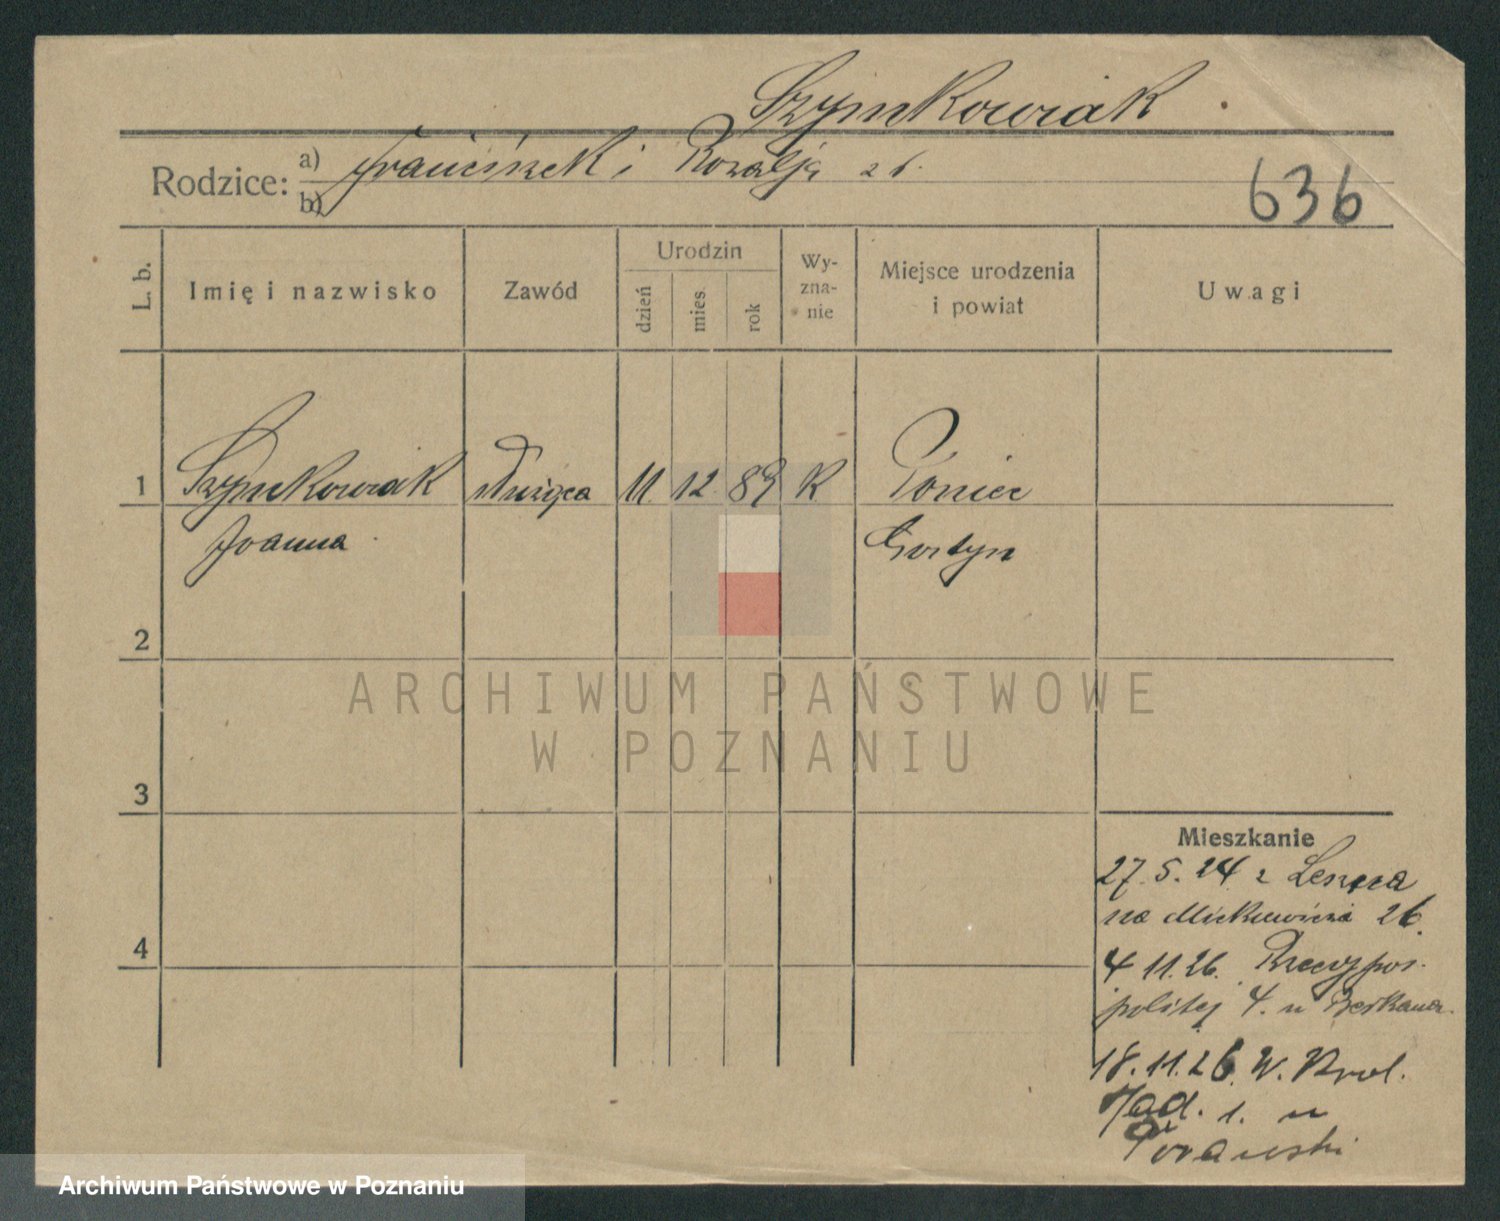 Szymkowiak
Rodzice: a) Franciszek i Rozalja z d.
b)
636
L. b. Imię i nazwisko Zawód Urodzin dzień mies. rok Wy-zna-nie Miejsce urodzenia i powiat Uwagi
1 Szymkowiak służąca 11. 12. 89 K Poniec
Joanna Gostyn
2
ARCHIWUM PAŃSTWOWE
W POZNANIU
3
Mieszkanie
27.5.24 z Leszna
na Mickiewicza 26.
4
4 11.26. Rzeczypos-
politej 4. u
18.11.26. W. Krol.
Jad. 1. u
Archiwum Państwowe w Poznaniu